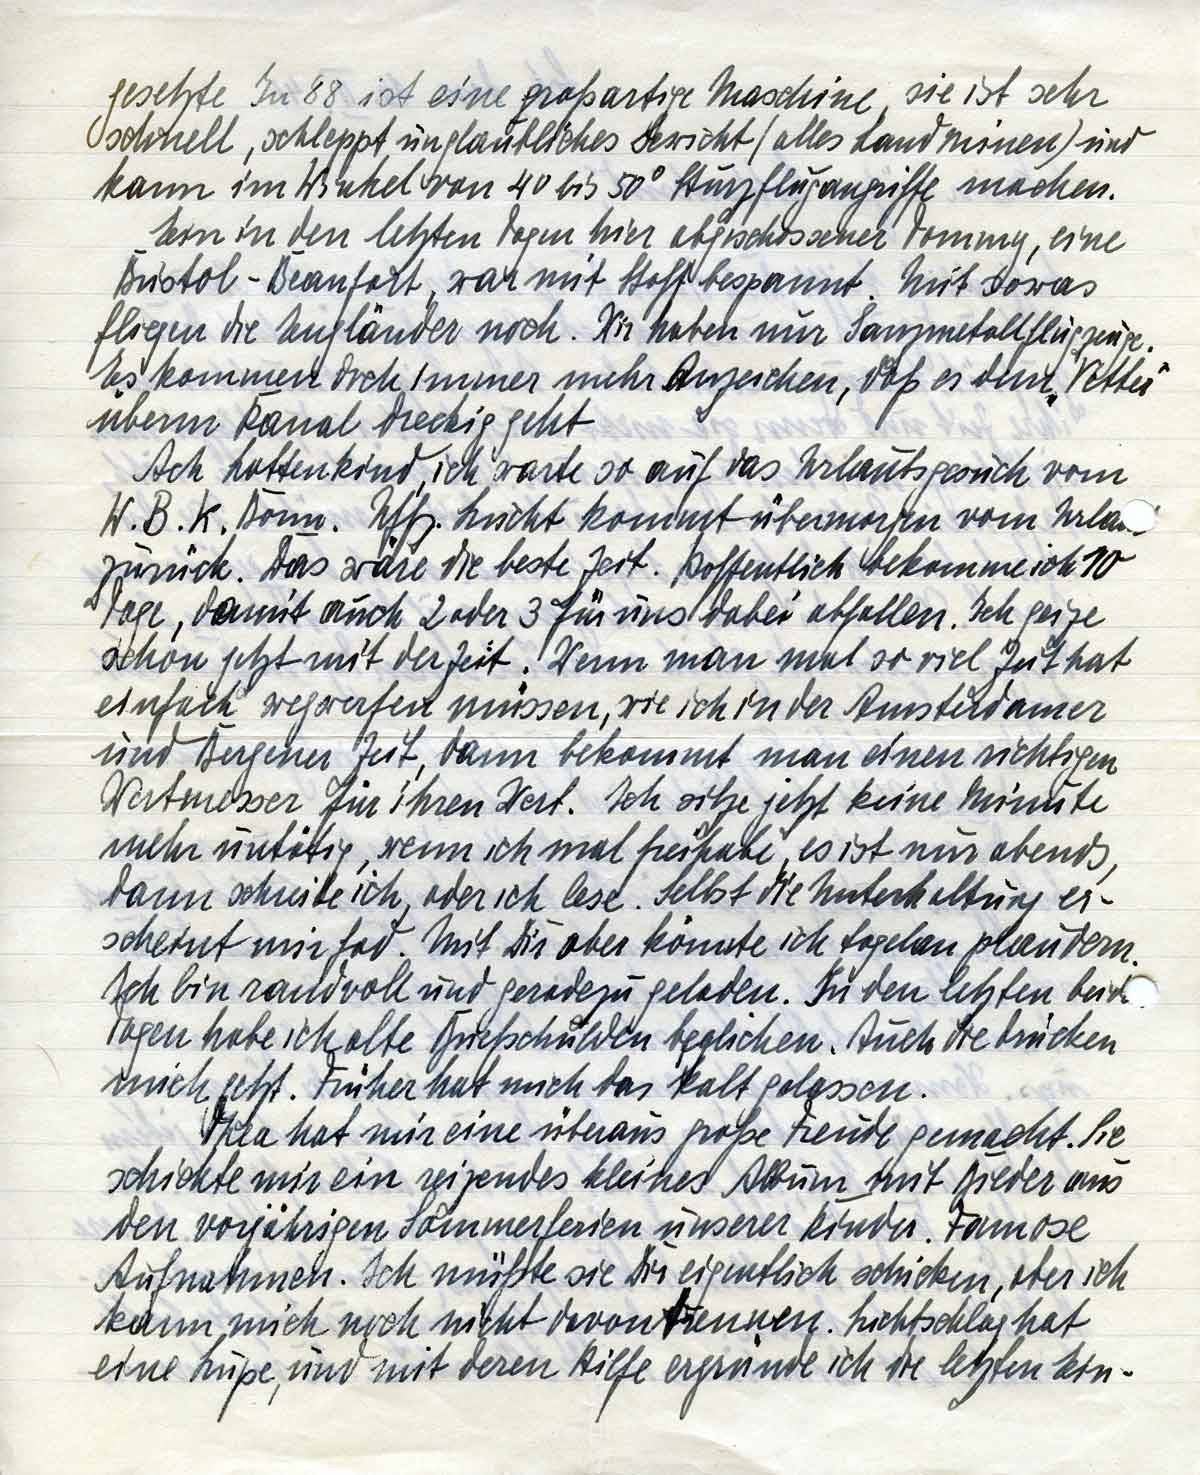 gesetzte Ju 88 ist eine großartige Maschine, sie ist sehr
schnell, schleppt unglaubliches Gewicht (alles Landminen) und
kann im Winkel von 40 bis 50° Sturzflugangriffe machen.
Ein in den letzten Tagen hier abgeschossener Tommy, eine
Bristol-Beaufort, war mit Stoff bespannt. Mit sowas
fliegen die Engländer noch. Wir haben nur Ganzmetallflugzeuge.
Es kommen doch immer mehr Anzeichen, daß es dem „Vetter"
überm Kanal dreckig geht
Ach Hottenkind, ich warte so auf das Urlaubsgesuch vom
W.B.K. Bonn. Uffz. Lucht kommt übermorgen vom Urlau
zurück. Das wäre die beste Zeit. Hoffentlich bekomme ich 10
Tage, damit auch 2 oder 3 für uns dabei abfallen. Ich geize
schon jetzt mit der Zeit. Wenn man mal so viel Zeit hat
einfach wegwerfen müssen, wie ich in der Amsterdamer
und Bergener Zeit, dann bekommt man einen richtigen
Wertmesser für ihren Wert. Ich sitze jetzt keine Minute
mehr untätig, wenn ich mal frei habe, es ist nur abends,
dann schreibe ich, oder ich lese. Selbst die Unterhaltung er-
scheint mir fad. Mit Dir aber könnte ich tagelan plaudern.
Ich bin randvoll und geradezu geladen. In den letzten beide
Tagen habe ich alte Briefschulden beglichen. Auch die drücken
mich jetzt. Früher hat mich das kalt gelassen.
Thea hat mir eine überaus große Freude gemacht. Sie
schickte mir ein reizendes kleines Album mit Bieder aus
den vorjährigen Sommerferien unserer Kinder. Famose
Aufnahmen. Ich müßte sie Dir eigentlich schicken, aber ich
kann mich noch nicht davon trennen. Lichtschlag hat
eine Lupe, und mit deren Hilfe ergründe ich die letzten Ein-